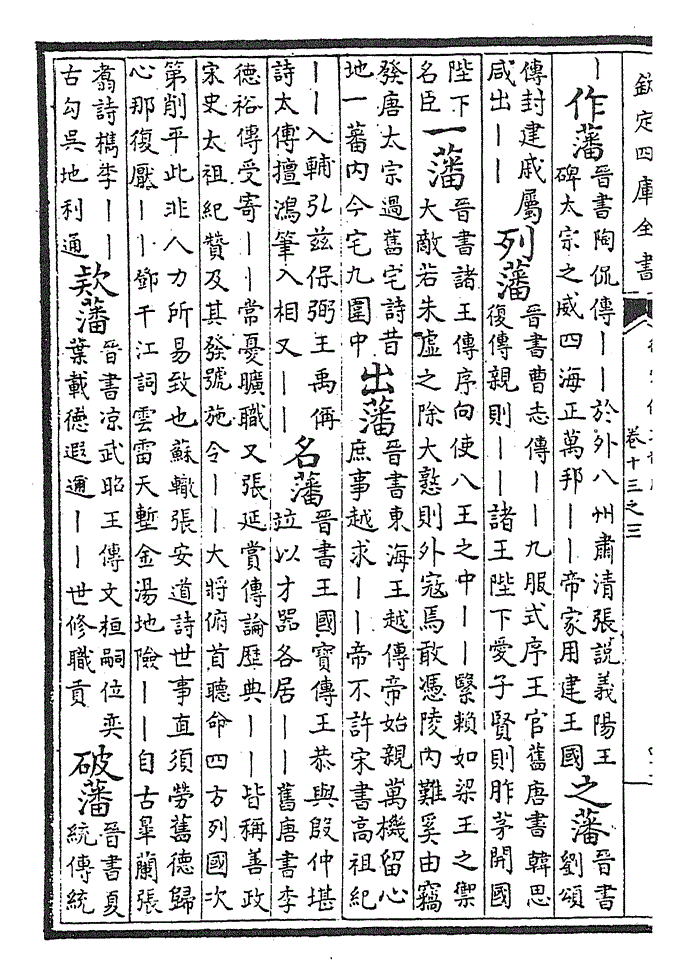 欽定四庫全書
卷十三之三
丨
作藩
晉書陶侃傳丨丨於外八州肅清張說義陽王
碑太宗之威四海正萬邦丨丨帝家用建王國
之藩
晉書
劉頌
傳封建戚屬
咸出丨丨
列藩
晉書曹志傳丨丨九服式序王官舊唐書韓思
復傳親則丨丨諸王陛下愛子賢則胙茅開國
陛下
名臣
一藩
晉書諸王傳序向使八王之中丨丨繄賴如梁王之禦
大敵若朱虛之除大憝則外寇焉敢憑陵內難奚由竊
發唐太宗過舊宅詩昔
地一蕃內今宅九圍中
出藩
晉書東海王越傳帝始親萬機留心
庶事越求丨丨帝不許宋書高祖紀
丨丨入輔弘茲保弼王禹偁
詩太傅擅鴻筆入相又丨丨
名藩
晉書王國寶傳王恭與殷仲堪
竝以才器各居丨丨舊唐書李
德裕傳受寄丨丨常憂曠職又張延賞傳論歷典丨丨皆稱善政
宋史太祖紀贊及其發號施令丨丨大將俯首聽命四方列國次
第削平此非人力所易致也蘇轍張安道詩世事直須勞舊德歸
心那復厭丨丨鄧千江詞雲雷天塹金湯地險丨丨自古臯蘭張
翥詩檇李丨丨
古勾吳地利通
欵藩
晉書凉武昭王傳文桓嗣位奕
葉載德遐邇丨丨世修職貢
破藩
晉書夏
統傳統